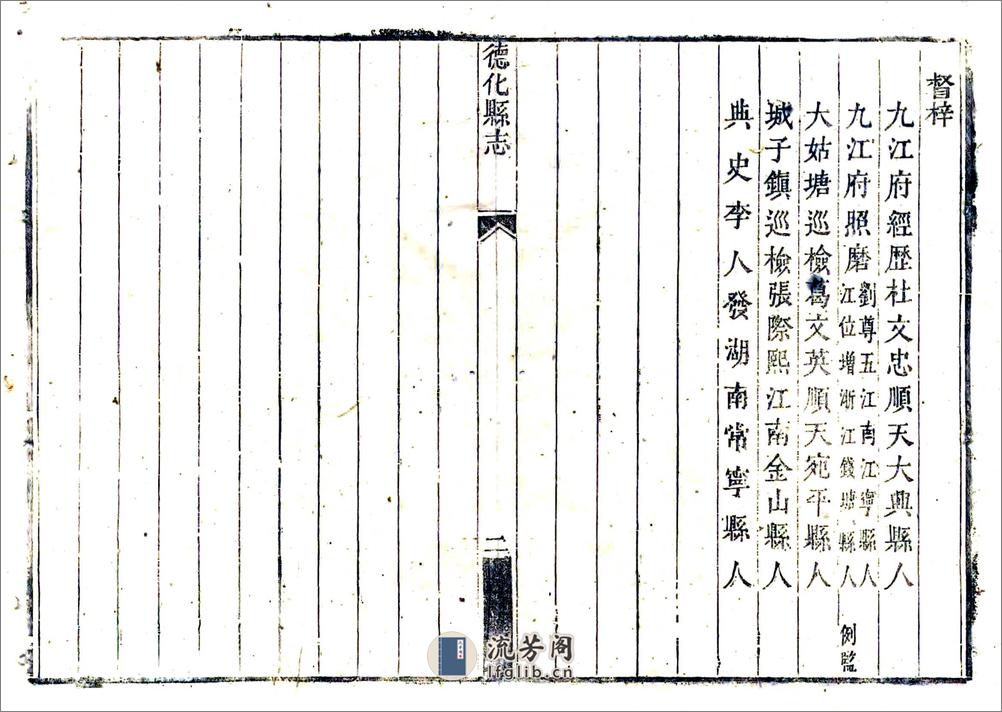 督梓
九江府經歷杜文忠順天大興縣人
九江府照磨劉尊五江南江寧縣人
江位增浙江錢塘縣人 例監
大姑塘巡檢葛文英順天宛平縣人
城子鎮巡檢張際熙江南金山縣人
典史李人發湖南常寧縣人
德化縣志
二
流芳阁
lfglib.cn